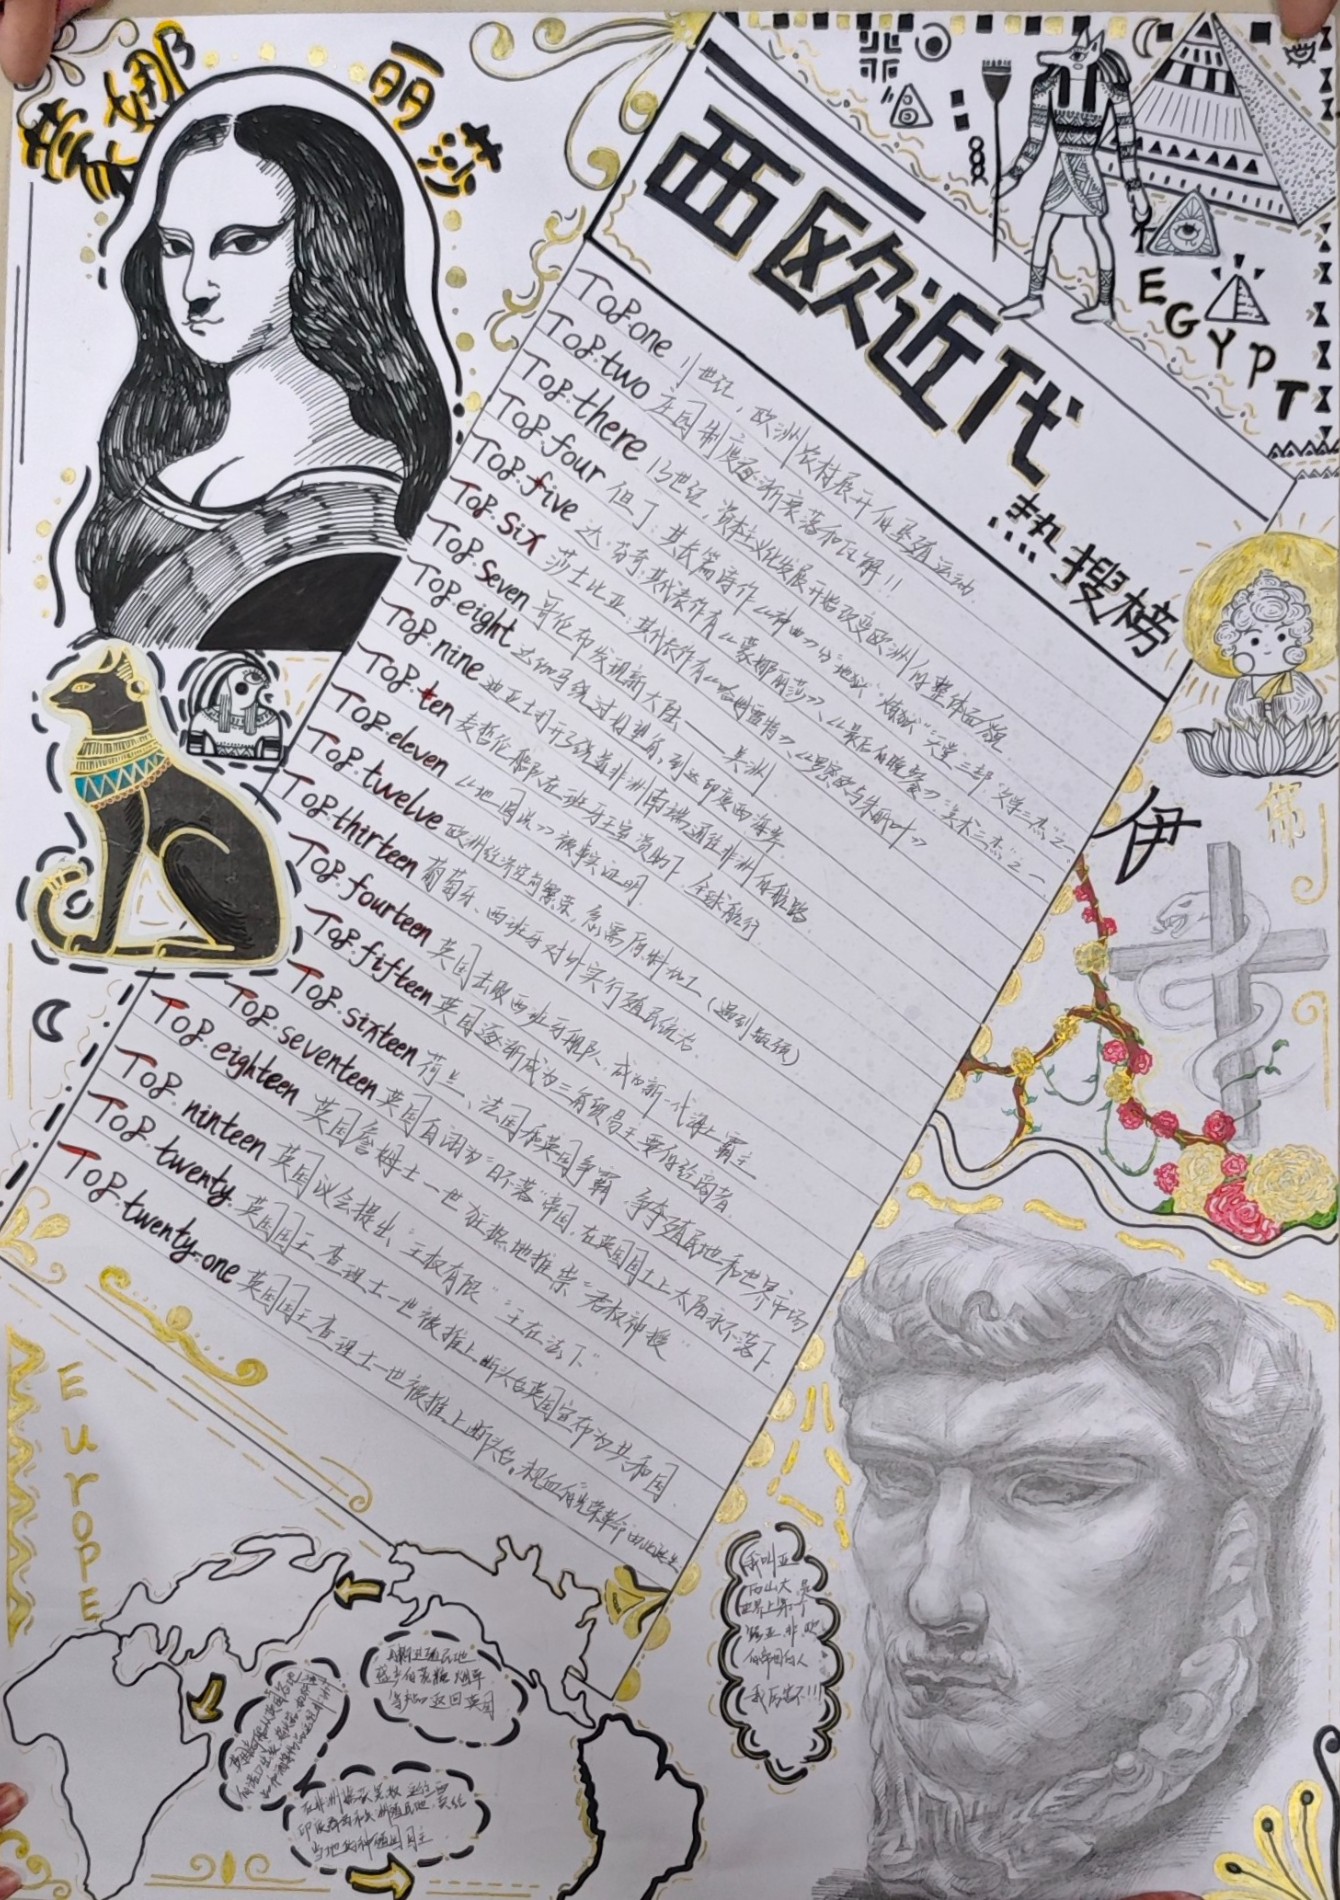 蒙娜丽莎
西欧近代
热搜榜
EGYPT
TOP.one 11世纪，欧洲农村展开的垦殖运动
TOP.two 庄园制度逐渐衰落和瓦解!!
TOP.there 13世纪，资本主义化发展开始改变欧洲的整体面貌
TOP.four 但丁：其长篇诗作《神曲》分"地狱""炼狱""天堂"三部 "文学三杰"之一
TOP.five 达·芬奇：其代表作有《蒙娜丽莎》、《最后的晚餐》"美术三杰"之一
TOP.six 莎士比亚：其代表作有《哈姆雷特》《罗密欧与朱丽叶》
TOP.seven 哥伦布发现新大陆——美洲
TOP.eight 达伽马绕过好望角，到达印度西海岸
TOP.nine 迪亚士开了绕着非洲南端通往非洲的航路
TOP.ten 麦哲伦船队在班牙王室资助下，全球航行
TOP.eleven 《地圆说》被事实证明
TOP.twelve 欧洲经济空前繁荣，急需原料加工（遇到瓶颈）
TOP.thirteen 葡萄牙、西班牙对外实行殖民统治.
TOP.fourteen 英国击败西班牙舰队，成为新一代海上霸主
TOP.fifteen 英国逐渐成为三角贸易主要的给商者.
TOP.sixteen 荷兰、法国和英国争霸，争夺殖民地和世界市场
TOP.seventeen 英国自诩为"日不落"帝国，在英国国土上太阳永不落下
TOP.eighteen 英国詹姆士一世狂热地推崇"君权神授"
TOP.ninteen 英国议会提出、"王权有限""王在法下"
TOP.twenty. 英国国王查理士一世被推上断头台英国宣布为共和国
TOP.twenty.one 英国国王查理士一世被推上断头台。"光荣革命"由此诞生
佛
伊
EuroPE
我叫亚
历山大，是
世界上第一个
跨亚、非、欧
的帝国的人
我厉害不!!!
返回英国
在非洲
当地的种植园园主